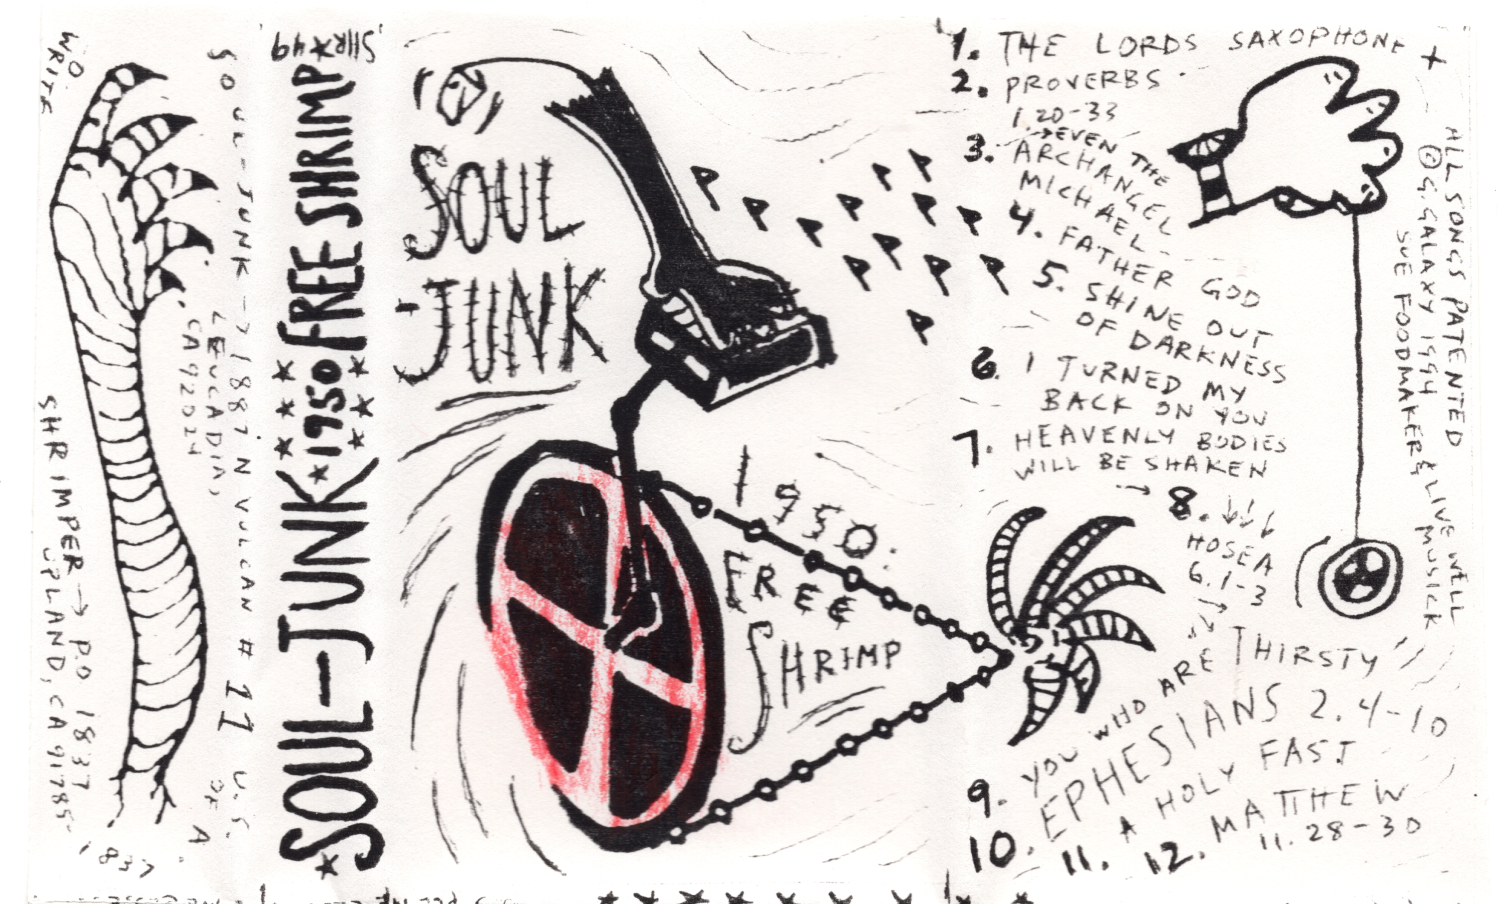 WRITE
SOUL-JUNK → 1887 N VULCAN # 11 U.S. OF A.
LEUCADIA,
CA 92024
SHRIMPER → P.O 1837
UPLAND, CA 91785-1837
SHR★49
★SOUL-JUNK★1950 FREE SHRIMP
SOUL
JUNK
1950.
FREE
SHRIMP
1. THE LORDS SAXOPHONE +
2. PROVERBS
1.20-33
3. →EVEN THE
ARCHANGEL
MICHAEL
4. FATHER GOD
5. SHINE OUT
OF DARKNESS
6. I TURNED MY
BACK ON YOU
7. HEAVENLY BODIES
WILL BE SHAKEN
→ 8. ↓↓↓
HOSEA
6.1-3
9. YOU WHO ARE THIRSTY
10. EPHESIANS 2.4-10
11. A HOLY FAST
12. MATTHEW
11.28-30
ALL SONGS PATENTED & LIVE WELL
@G.GALAXY 1994 MUSICK
SUE FOODMAKERS